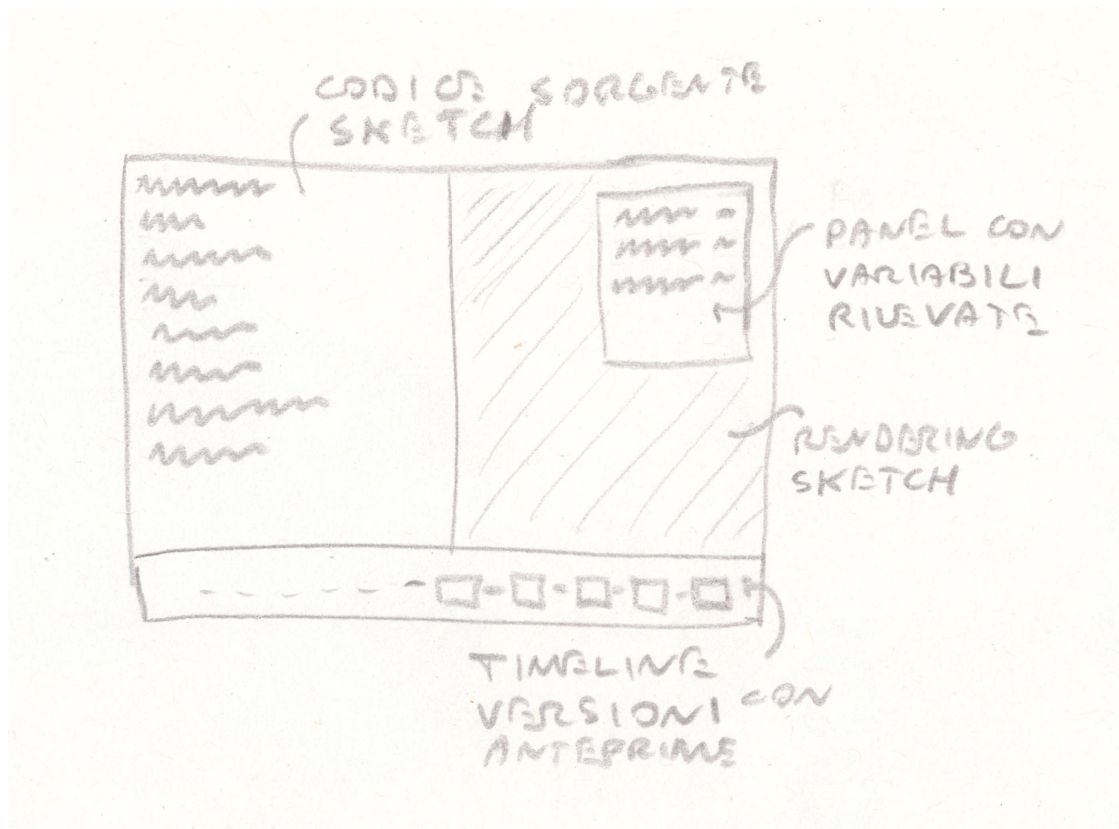 CODICE SORGENTE
SKETCH
PANEL CON
VARIABILI
RILEVATE
RENDERING
SKETCH
TIMELINE
VERSIONI CON
ANTEPRIME